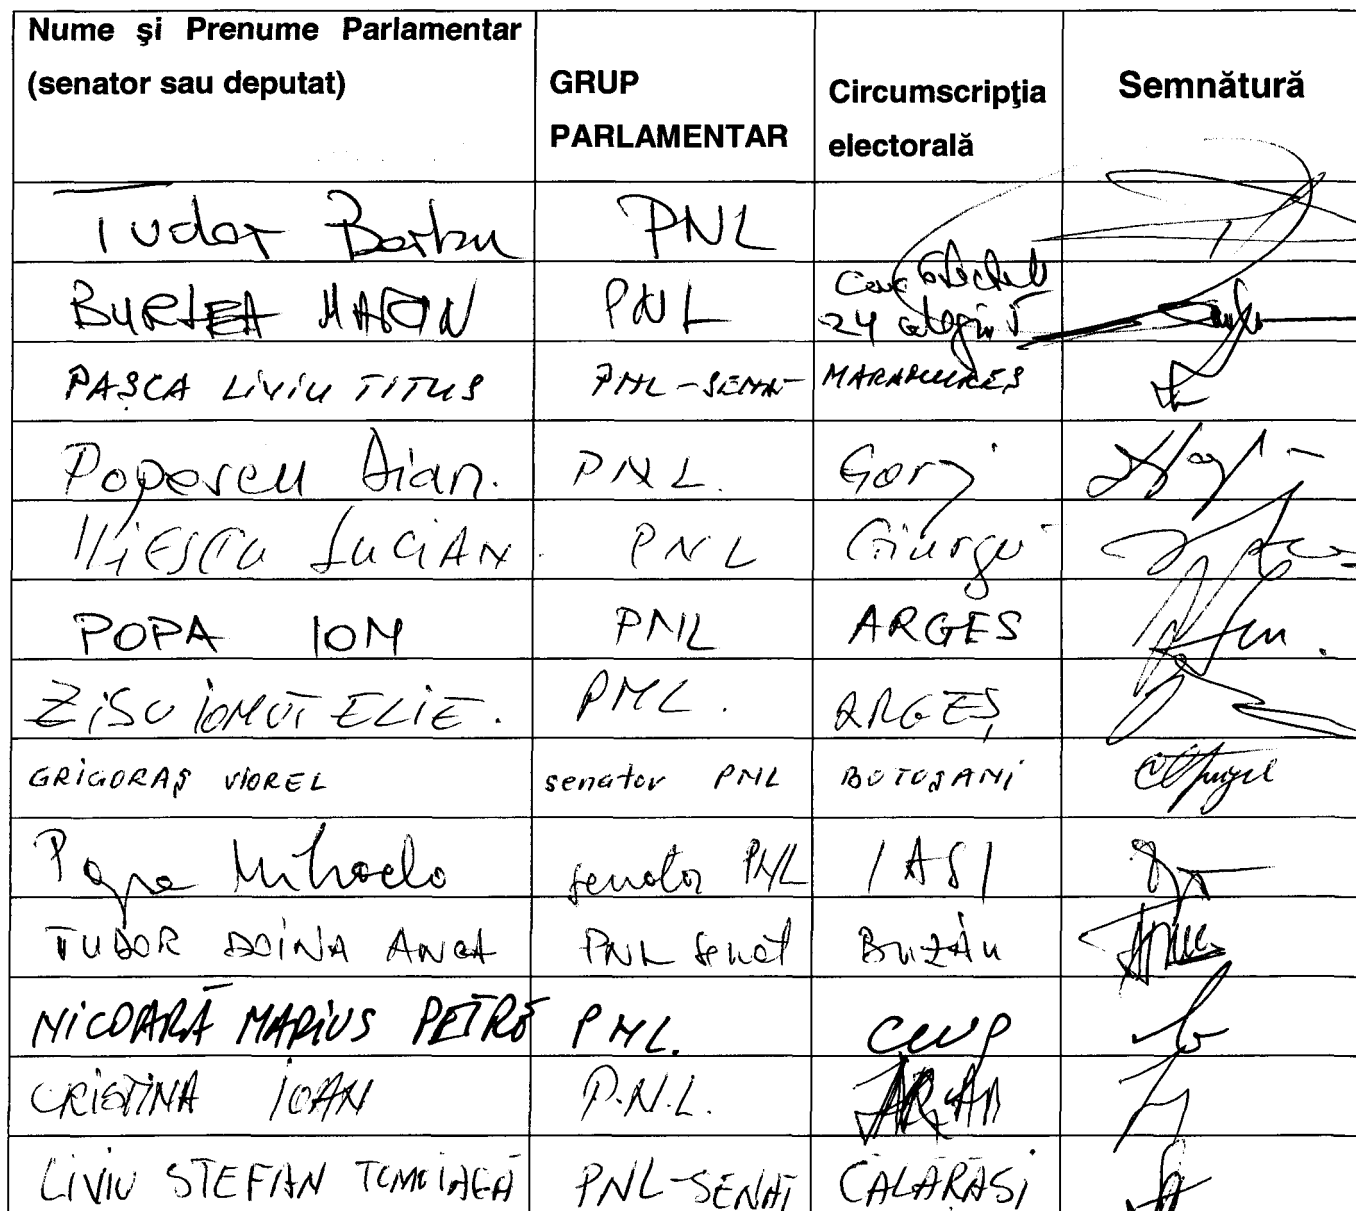 Nume și Prenume Parlamentar
(senator sau deputat)
GRUP
PARLAMENTAR
Circumscripţia
electorală
Semnătură
Tudor Barbu PNL
BURLEA MARIN PNL
24 colegiu 5
PAȘCA LIVIU TITUS PNL-SENAT MARAMUREȘ
Popescu Dian. PNL. Gorj
ILiESCU LUCIAN PNL Giurgiu
POPA ION PNL ARGES
ZISU IONUȚ ELIE. PNL. ARGEȘ
GRIGORAȘ VIOREL senator PNL BOTOȘANI
Popa Mihaela senator PNL IASI
TUDOR DOINA ANCA PNL Senat BUZĂU
NICOARĂ MARIUS PETRE PNL. CLUJ
CRISTINA IOAN P.N.L. ARAD
LIVIU STEFAN TOMOIAGĂ PNL-SENAT CALARASI